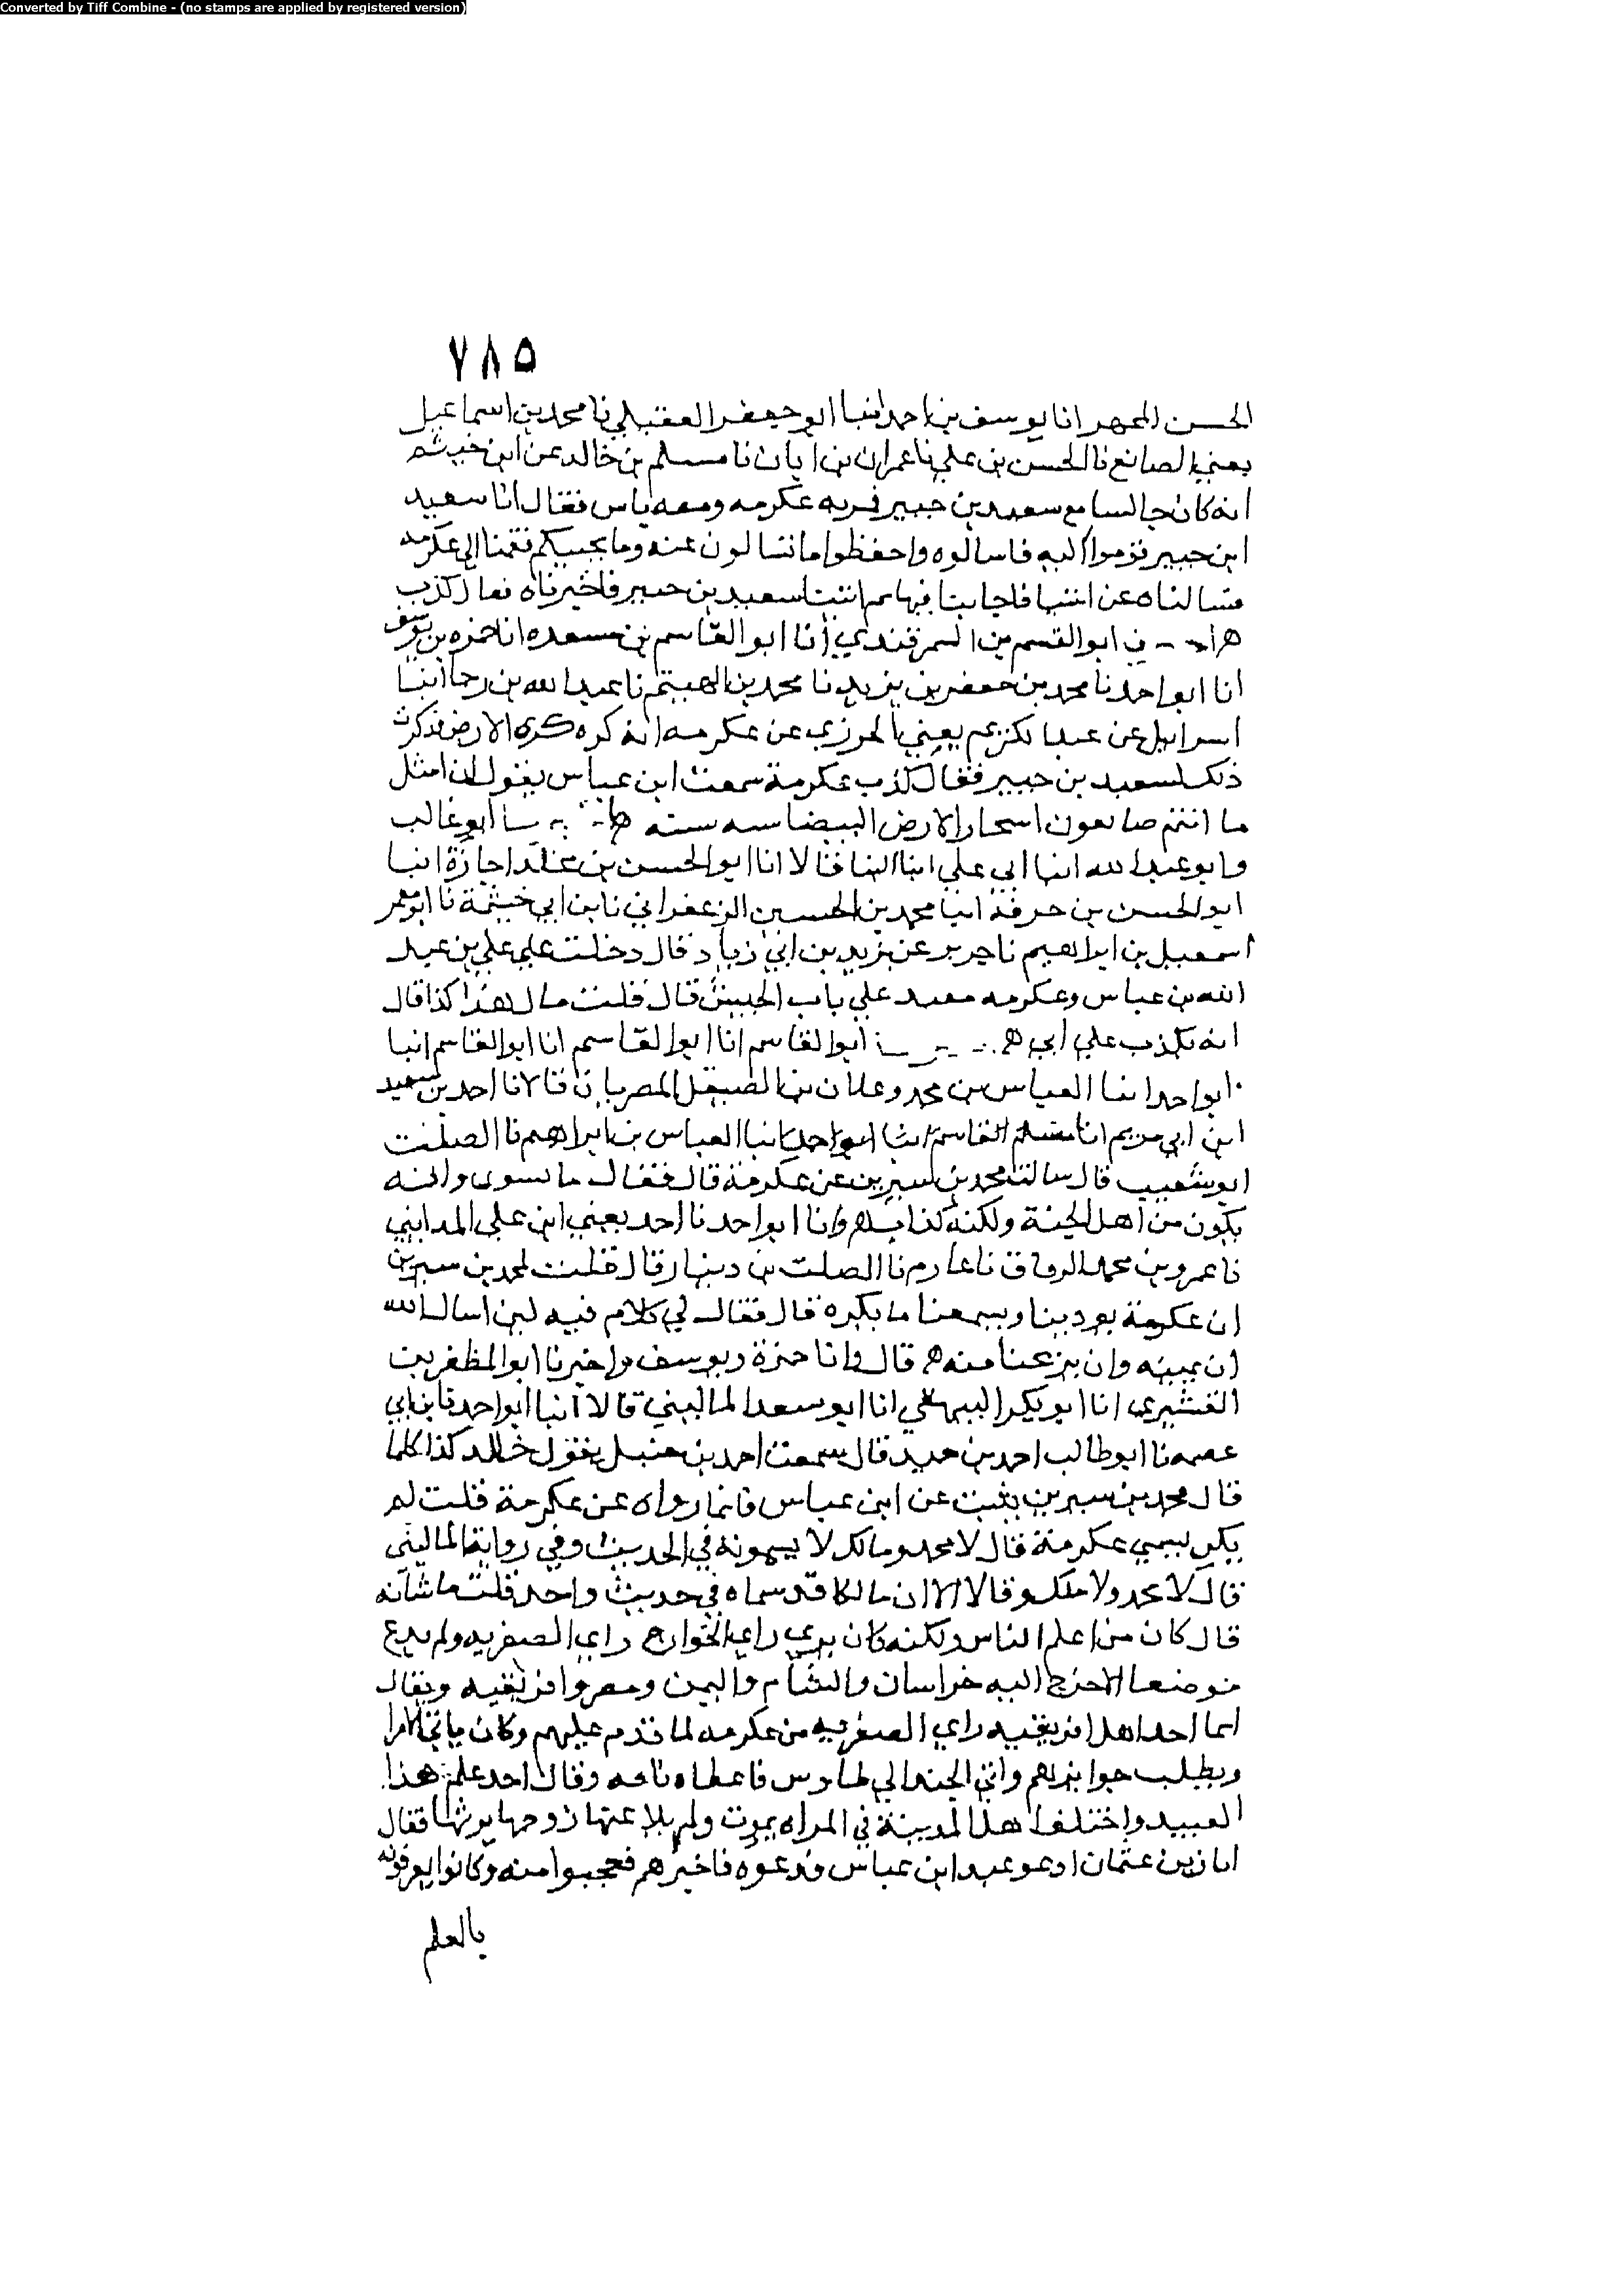 Converted by Tiff Combine - (no stamps are applied by registered version)
٧٨٥
الحسن المجهر انا يوسف بن احمد انبا ابو جعفر العقيلي نا محمد بن اسماعيل
يعني الصائغ نا الحسن بن علي نا عمران بن ابان نا مسلم بن خالد عن ابن خيثم
انه كان جالسا مع سعيد بن جبير فمر به عكرمه ومعه ناس فقال لنا سعيد
ابن جبير قوموا اليه فاسالوه واحفظوا ما تسالون عنه وما يجيبكم فقمنا الى عكرمه
فسالناه عن اشيا فاجابنا فيها ثم اتينا سعيد بن جبير فاخبرناه فقال كذب
ابو القسم بن السمرقندي انا ابو القاسم بن مسعده انا حمزه بن يوسف
انا ابو احمد نا محمد بن جعفر بن يزيد نا محمد بن الهيثم نا عبد الله بن رجا انبا
اسراييل عن عبد الكريم يعني الجزري عن عكرمه انه كره كرى الارض فذكرت
ذلك لسعيد بن جبير فقال كذب عكرمة سمعت ابن عباس يقول ان امثل
ما انتم صانعون استجار الارض البيضا سنه سنه ابو غالب
وابو عبد الله انبا ابي علي انبا البنا قالا انا ابو الحسن بن مخلد اجازة انبا
ابو الحسن بن خزفة انبا محمد بن الحسين الزعفراني نا بن ابي خيثمة نا ابو معمر
اسمعيل بن ابراهيم نا جرير عن يزيد بن ابي زياد قال دخلت على علي بن عبد
الله بن عباس وعكرمه مقيد على باب الحش قال قلت ما لهذا كذا قال
انه يكذب على ابي ابو القاسم انا ابو القاسم انا ابو القاسم انبا
ابو احمد انبا العباس بن محمد وعلان بن الصيقل المصريان قالا نا احمد بن سعيد
ابن ابي مريم انا القاسم انبا ابو احمد انبا العباس بن ابراهيم نا الصلت
ابو شعيب قال سالت محمد بن سيرين عن عكرمة قال فقال ما يسوى وانه
يكون من اهل الجنة ولكنه كذاب وانا ابو احمد نا احمد يعني ابن علي المدايني
نا عمرو بن محمد نا عارم نا الصلت بن دينار قال قلت لمحمد بن سيرين
ان عكرمة يوذينا ويسمعنا ما نكره قال فقال لي كلام فيه لين اسال الله
ان يميته وان يريحنا منه قال وانا حمزة بن يوسف واخبرنا ابو المظفر بن
القشيري انا ابو بكر البيهقي انا ابو سعد الماليني قالا انبا ابو احمد نا بن ابي
عصمه نا ابو طالب احمد بن حميد قال سمعت احمد بن حنبل يقول خالد كذا كلما
قال محمد بن سيرين يثبت عن ابن عباس فانما رواه عن عكرمة قلت لم
يكن يسمي عكرمة قال لا محمد ومالك لا يسمونه في الحديث وفي رواية الماليني
قال لا محمد ولا ملك وقالا الا ان مالكا قد سماه في حديث واحد قلت ما شانه
قال كان من اعلم الناس ولكنه كان يرى راي الخوارج راي الصفريه ولم يدع
موضعا الا خرج اليه خراسان والشام واليمن ومصر وافريقيه ويقال
انما اخذ اهل افريقيه راي الصفريه من عكرمه لما قدم عليهم وكان ياتي الامرا
ويطلب جوايزهم واتى الجند الى طاوس فاعطاه ناقه وقال اخذ علم هذا
العبيد واختلف اهل المدينة في المراه يموت ولم يلاعنها زوجها يرثها فقال
ابان بن عثمان ادعو عبد ابن عباس فدعوه فاخبرهم فعجبوا منه وكانوا يعرفونه
بالعلم